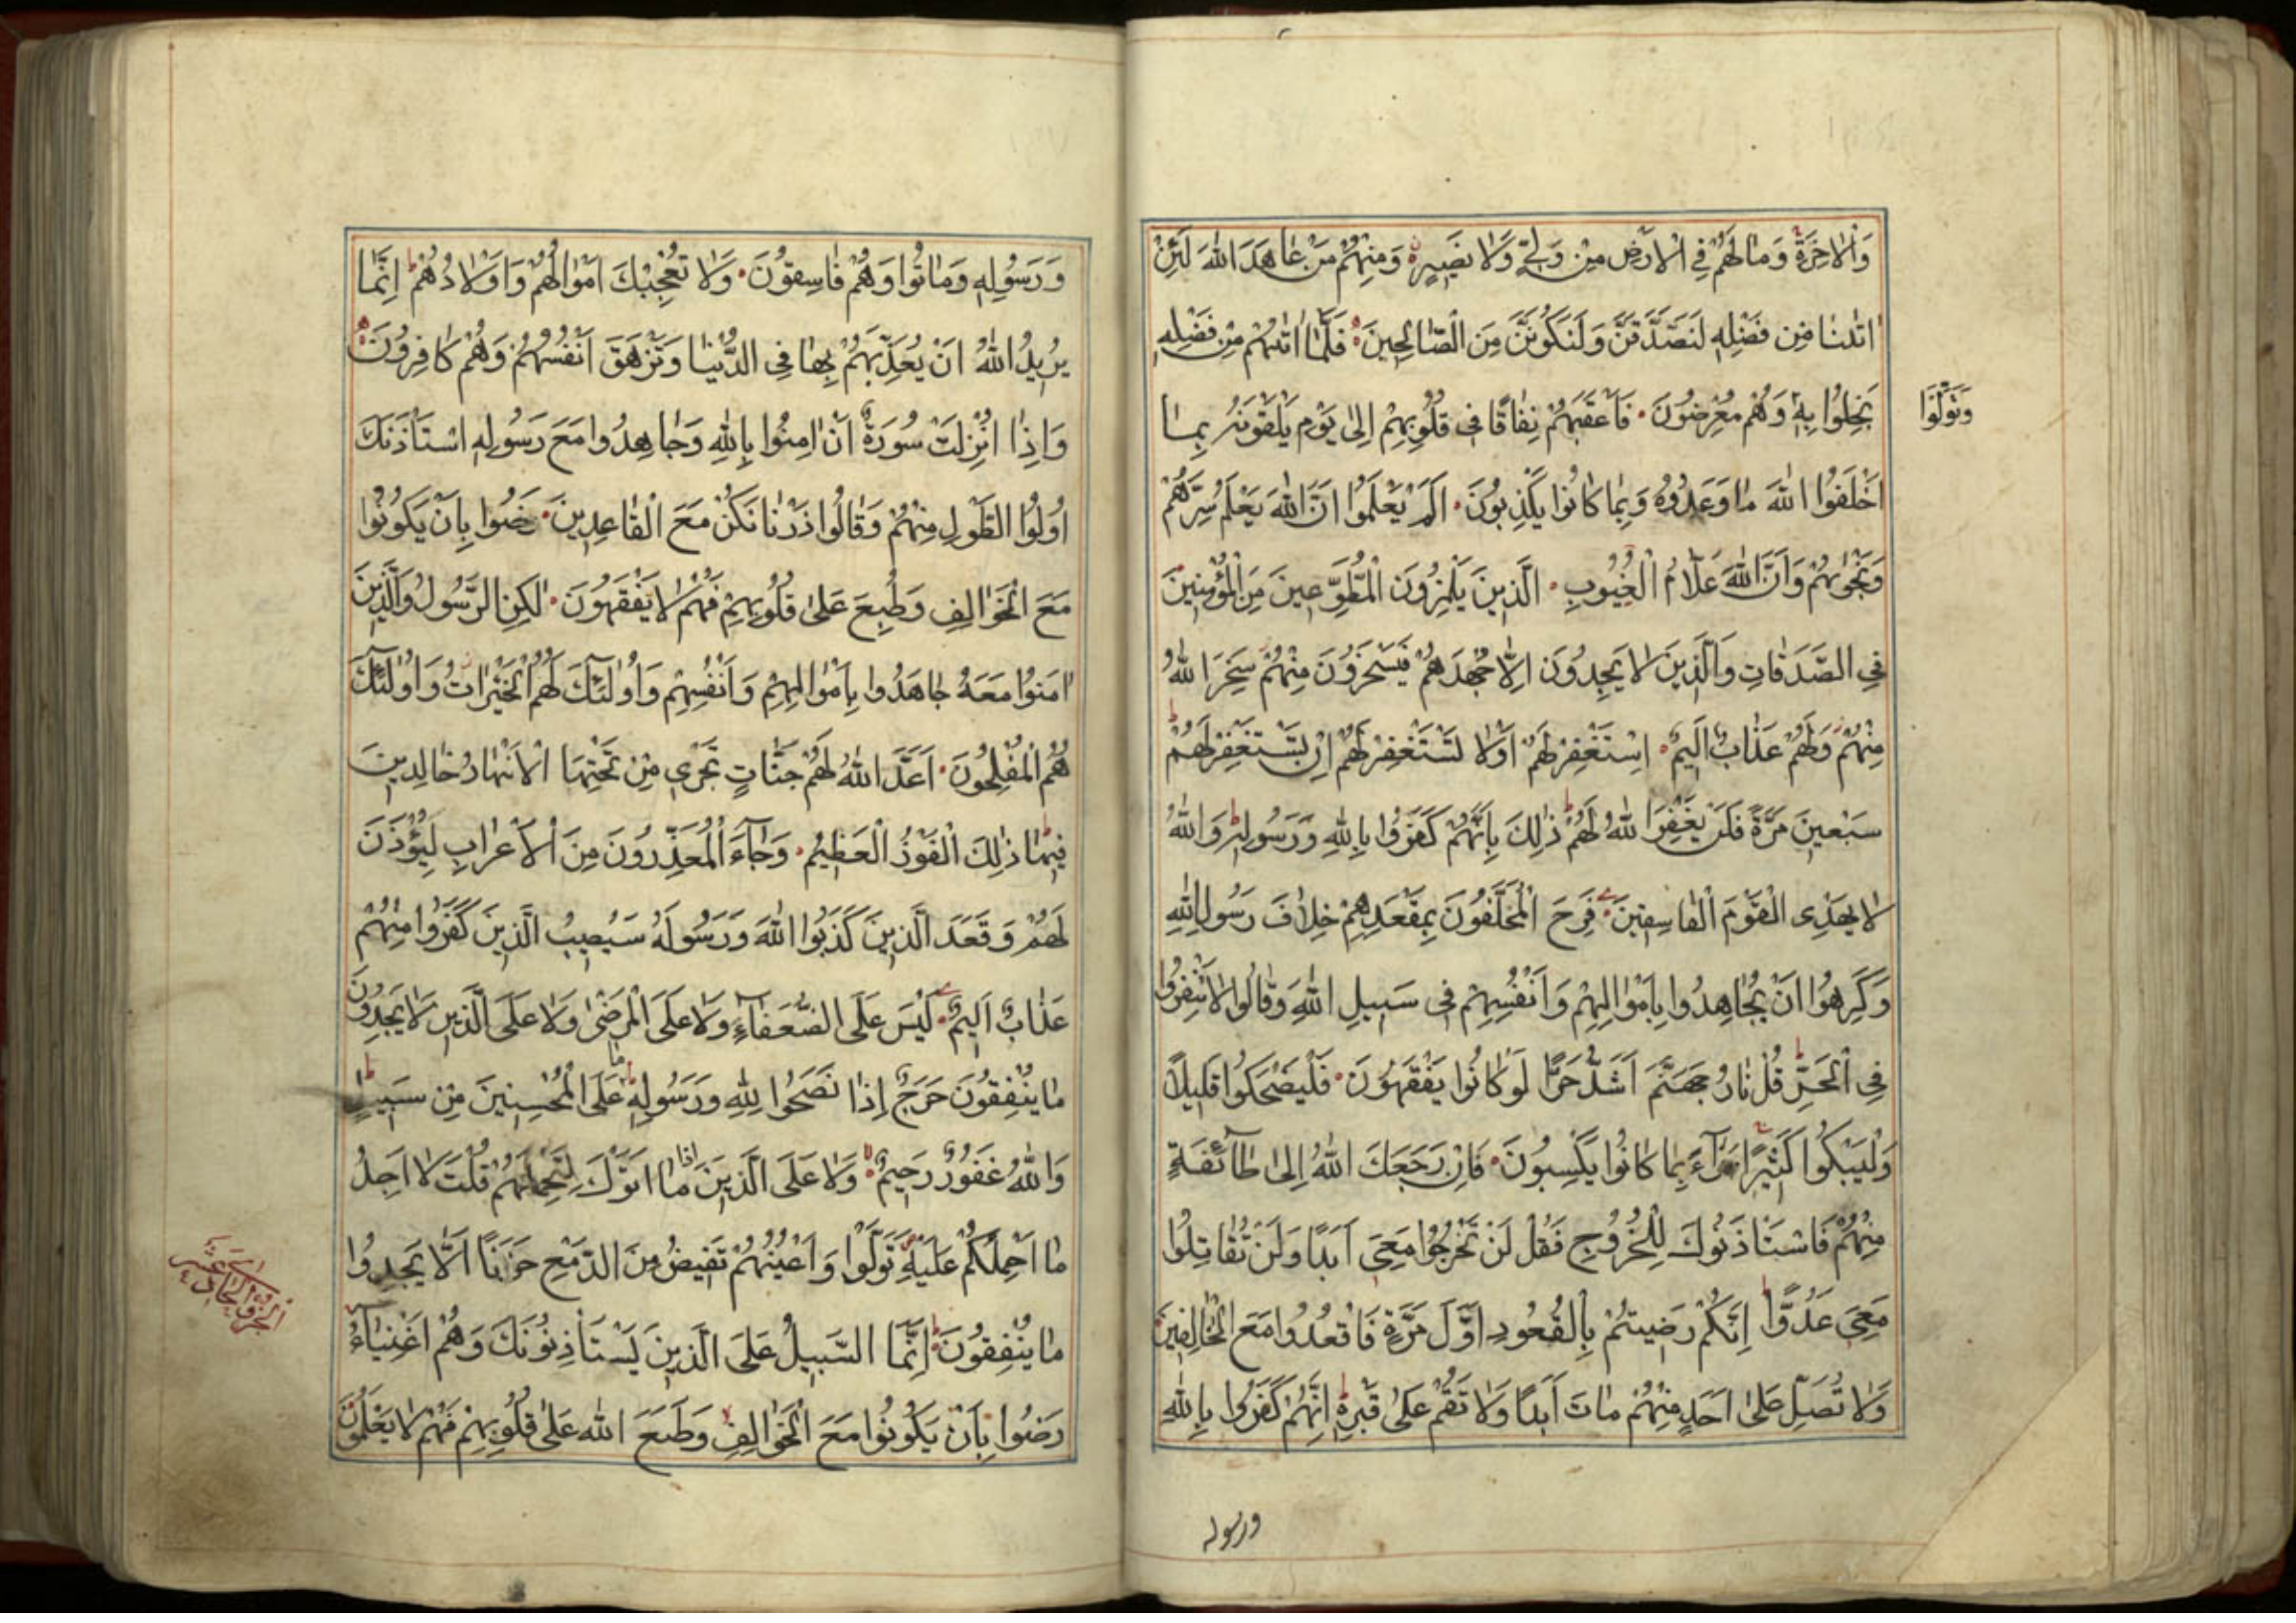 وَالْاٰخِرَةِ وَمَا لَهُمْ فِي الْاَرْضِ مِنْ وَلِيٍّ وَلَا نَصِيرٍ وَمِنْهُمْ مَنْ عَاهَدَ اللّٰهَ لَئِنْ
اٰتٰينَا مِنْ فَضْلِهِ لَنَصَّدَّقَنَّ وَلَنَكُونَنَّ مِنَ الصَّالِحِينَ فَلَمَّا اٰتٰيهُمْ مِنْ فَضْلِهِ
بَخِلُوا بِهِ وَهُمْ مُعْرِضُونَ فَاَعْقَبَهُمْ نِفَاقًا فِي قُلُوبِهِمْ اِلٰى يَوْمِ يَلْقَوْنَهُ بِمَا
وَتَوَلَّوْا
اَخْلَفُوا اللّٰهَ مَا وَعَدُوهُ وَبِمَا كَانُوا يَكْذِبُونَ اَلَمْ يَعْلَمُوا اَنَّ اللّٰهَ يَعْلَمُ سِرَّهُمْ
وَنَجْوٰيهُمْ وَاَنَّ اللّٰهَ عَلَّامُ الْغُيُوبِ اَلَّذِينَ يَلْمِزُونَ الْمُطَّوِّعِينَ مِنَ الْمُؤْمِنِينَ
فِي الصَّدَقَاتِ وَالَّذِينَ لَا يَجِدُونَ اِلَّا جُهْدَهُمْ فَيَسْخَرُونَ مِنْهُمْ سَخِرَ اللّٰهُ
مِنْهُمْ وَلَهُمْ عَذَابٌ اَلِيمٌ اِسْتَغْفِرْ لَهُمْ اَوْ لَا تَسْتَغْفِرْ لَهُمْ اِنْ تَسْتَغْفِرْ لَهُمْ
سَبْعِينَ مَرَّةً فَلَنْ يَغْفِرَ اللّٰهُ لَهُمْ ذٰلِكَ بِاَنَّهُمْ كَفَرُوا بِاللّٰهِ وَرَسُولِهِ وَاللّٰهُ
لَا يَهْدِي الْقَوْمَ الْفَاسِقِينَ فَرِحَ الْمُخَلَّفُونَ بِمَقْعَدِهِمْ خِلَافَ رَسُولِ اللّٰهِ
وَكَرِهُوا اَنْ يُجَاهِدُوا بِاَمْوَالِهِمْ وَاَنْفُسِهِمْ فِي سَبِيلِ اللّٰهِ وَقَالُوا لَا تَنْفِرُوا
فِي الْحَرِّ قُلْ نَارُ جَهَنَّمَ اَشَدُّ حَرًّا لَوْ كَانُوا يَفْقَهُونَ فَلْيَضْحَكُوا قَلِيلًا
وَلْيَبْكُوا كَثِيرًا جَزَآءً بِمَا كَانُوا يَكْسِبُونَ فَاِنْ رَجَعَكَ اللّٰهُ اِلٰى طَآئِفَةٍ
مِنْهُمْ فَاسْتَأْذَنُوكَ لِلْخُرُوجِ فَقُلْ لَنْ تَخْرُجُوا مَعِيَ اَبَدًا وَلَنْ تُقَاتِلُوا
مَعِيَ عَدُوًّا اِنَّكُمْ رَضِيتُمْ بِالْقُعُودِ اَوَّلَ مَرَّةٍ فَاقْعُدُوا مَعَ الْخَالِفِينَ
وَلَا تُصَلِّ عَلٰى اَحَدٍ مِنْهُمْ مَاتَ اَبَدًا وَلَا تَقُمْ عَلٰى قَبْرِهِ اِنَّهُمْ كَفَرُوا بِاللّٰهِ
ورسوله
وَرَسُولِهِ وَمَاتُوا وَهُمْ فَاسِقُونَ وَلَا تُعْجِبْكَ اَمْوَالُهُمْ وَاَوْلَادُهُمْ اِنَّمَا
يُرِيدُ اللّٰهُ اَنْ يُعَذِّبَهُمْ بِهَا فِي الدُّنْيَا وَتَزْهَقَ اَنْفُسُهُمْ وَهُمْ كَافِرُونَ
وَاِذَا اُنْزِلَتْ سُورَةٌ اَنْ اٰمِنُوا بِاللّٰهِ وَجَاهِدُوا مَعَ رَسُولِهِ اسْتَأْذَنَكَ
اُولُوا الطَّوْلِ مِنْهُمْ وَقَالُوا ذَرْنَا نَكُنْ مَعَ الْقَاعِدِينَ رَضُوا بِاَنْ يَكُونُوا
مَعَ الْخَوَالِفِ وَطُبِعَ عَلٰى قُلُوبِهِمْ فَهُمْ لَا يَفْقَهُونَ لٰكِنِ الرَّسُولُ وَالَّذِينَ
اٰمَنُوا مَعَهُ جَاهَدُوا بِاَمْوَالِهِمْ وَاَنْفُسِهِمْ وَاُولٰٓئِكَ لَهُمُ الْخَيْرَاتُ وَاُولٰٓئِكَ
هُمُ الْمُفْلِحُونَ اَعَدَّ اللّٰهُ لَهُمْ جَنَّاتٍ تَجْرِي مِنْ تَحْتِهَا الْاَنْهَارُ خَالِدِينَ
فِيهَا ذٰلِكَ الْفَوْزُ الْعَظِيمُ وَجَآءَ الْمُعَذِّرُونَ مِنَ الْاَعْرَابِ لِيُؤْذَنَ
لَهُمْ وَقَعَدَ الَّذِينَ كَذَبُوا اللّٰهَ وَرَسُولَهُ سَيُصِيبُ الَّذِينَ كَفَرُوا مِنْهُمْ
عَذَابٌ اَلِيمٌ لَيْسَ عَلَى الضُّعَفَآءِ وَلَا عَلَى الْمَرْضٰى وَلَا عَلَى الَّذِينَ لَا يَجِدُونَ
مَا يُنْفِقُونَ حَرَجٌ اِذَا نَصَحُوا لِلّٰهِ وَرَسُولِهِ مَا عَلَى الْمُحْسِنِينَ مِنْ سَبِيلٍ
وَاللّٰهُ غَفُورٌ رَحِيمٌ وَلَا عَلَى الَّذِينَ اِذَا مَا اَتَوْكَ لِتَحْمِلَهُمْ قُلْتَ لَا اَجِدُ
مَا اَحْمِلُكُمْ عَلَيْهِ تَوَلَّوْا وَاَعْيُنُهُمْ تَفِيضُ مِنَ الدَّمْعِ حَزَنًا اَلَّا يَجِدُوا
مَا يُنْفِقُونَ اِنَّمَا السَّبِيلُ عَلَى الَّذِينَ يَسْتَأْذِنُونَكَ وَهُمْ اَغْنِيَآءُ
الجزو الحادي عشر
رَضُوا بِاَنْ يَكُونُوا مَعَ الْخَوَالِفِ وَطَبَعَ اللّٰهُ عَلٰى قُلُوبِهِمْ فَهُمْ لَا يَعْلَمُونَ